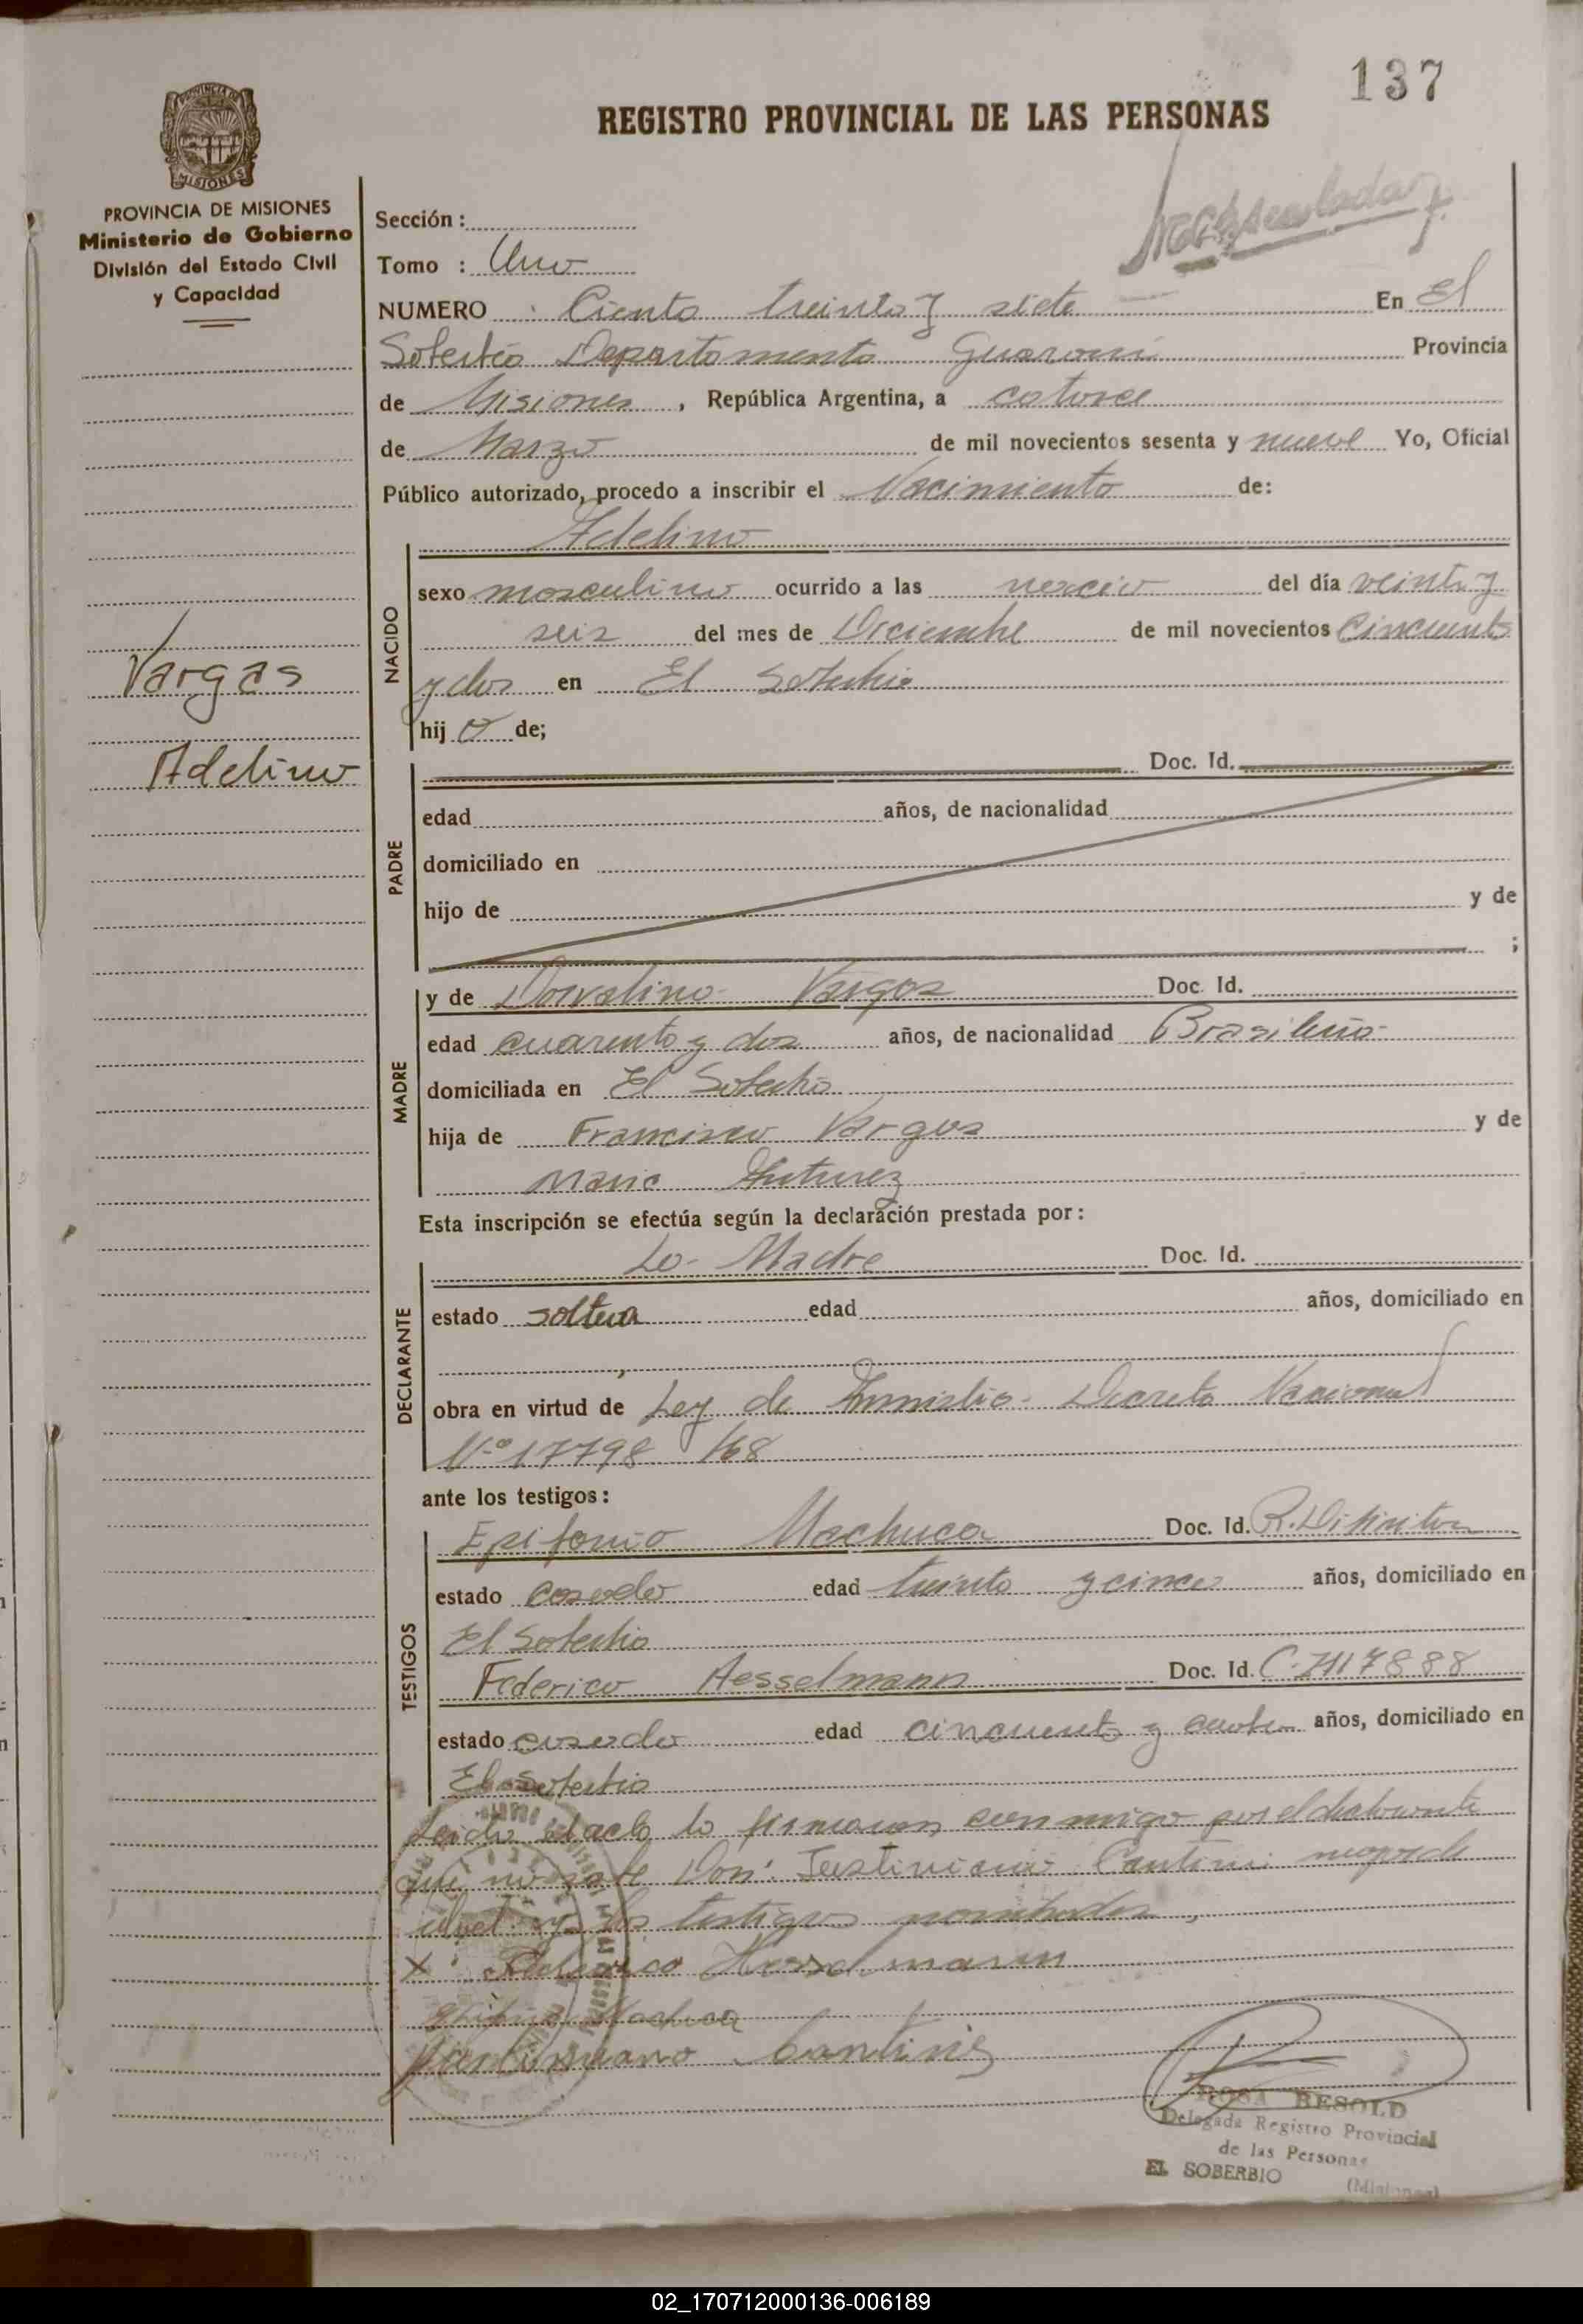 137
REGISTRO PROVINCIAL DE LAS PERSONAS
PROVINCIA DE MISIONES
Ministerio de Gobierno
División del Estado Civil
y Capacidad
Sección :
Tomo : Uno
NUMERO : Ciento treinta y siete En El
Soberbio Departamento Guarani Provincia
de Misiones , República Argentina, a catorce
de Marzo de mil novecientos sesenta y nueve Yo, Oficial
Público autorizado, procedo a inscribir el Nacimiento de:
Adelino
NACIDO
sexo masculino ocurrido a las del día veinte y
seis del mes de Diciembre de mil novecientos Cincuenta
y dos en El Soberbio
hij o de;
Vargas
Adelino
PADRE
Doc. Id.
edad años, de nacionalidad
domiciliado en
hijo de y de
;
MADRE
y de Dorvalina Vargas Doc. Id.
edad cuarenta y dos años, de nacionalidad Brasileña
domiciliada en El Soberbio
hija de Francisco Vargas y de
Maria Antunez
Esta inscripción se efectúa según la declaración prestada por:
DECLARANTE
La Madre Doc. Id.
estado soltera edad años, domiciliado en
,
obra en virtud de Ley de Amnistia Decreto Nacional
Nº 17798 /68
ante los testigos:
TESTIGOS
Epifanio Machuca Doc. Id.
estado casado edad treinta y cinco años, domiciliado en
El Soberbio
Federico Hesselmann Doc. Id. C.
estado casado edad cincuenta y cuatro años, domiciliado en
El Soberbio
Leida el acta la firmaron conmigo por el declarante
que no sabe Don: Justiniano Cantini
y los testigos nombrados,
X Federico Hesselmann
Epifanio Machuca
Justiniano Cantinis
ROSA RESOLD
Delegada Registro Provincial
de las Personas
EL SOBERBIO (Misiones)
02_170712000136-006189